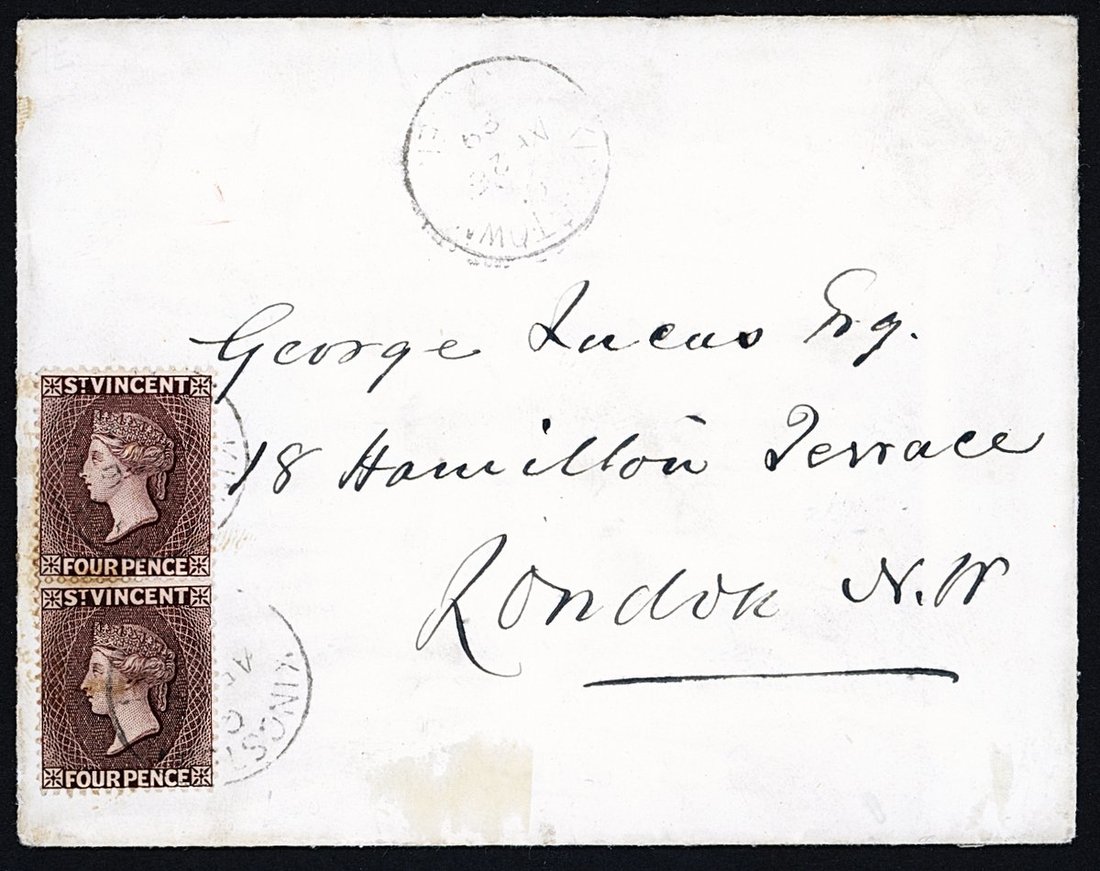 George Lucas Esq.
18 Hamilton Terrace
London N.W
ST. VINCENT
FOUR PENCE
ST. VINCENT
FOUR PENCE